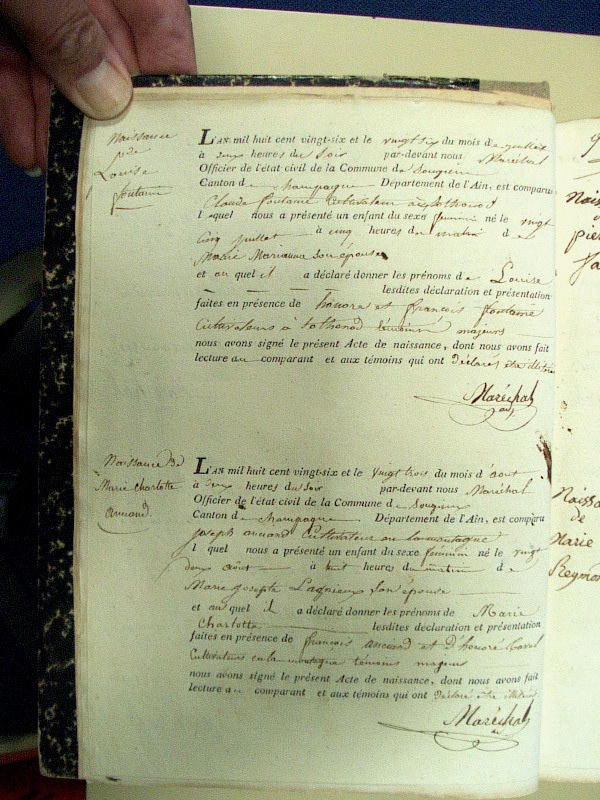 Naissance
de
Louise
fontaine
L'AN mil huit cent vingt-six et le vingt six du mois de juillet
à deux heures du soir par-devant nous Maréchal
Officier de l'état civil de la Commune de Songieu
Canton de champagne Département de l'Ain, est comparu
Claude fontaine Cultivateur à Sothonod
lequel nous a présenté un enfant du sexe feminin né le vingt
Cinq juillet à cinq heures du matin de
Marie Marianna Son épouse
et au quel il a déclaré donner les prénoms de Louise
lesdites déclaration et présentation
faites en présence de honoré et françois fontaine
Cultivateurs à Sothonod témoins majeurs
nous avons signé le présent Acte de naissance, dont nous avons fait
lecture au comparant et aux témoins qui ont Déclarés être illiterés
Maréchal
Naissance De
Marie Charlotte
ancand
L'AN mil huit cent vingt-six et le vingt trois du mois d'aout
à deux heures du soir par-devant nous Maréchal
Officier de l'état civil de la Commune de Songieu
Canton de champagne Département de l'Ain, est comparu
joseph ancand Cultivateur en la montagne
l quel nous a présenté un enfant du sexe feminin né le vingt
deux août à huit heures du matin de
Marie josephe Lagnieux Son épouse
et au quel il a déclaré donner les prénoms de Marie
Charlotte lesdites déclaration et présentation
faites en présence de françois ancand et D'honoré
Cultivateurs en la montagne témoins majeurs
nous avons signé le présent Acte de naissance, dont nous avons fait
lecture au comparant et aux témoins qui ont Déclaré être illiterés
Maréchal
Naissa
de
Marie
Reymon